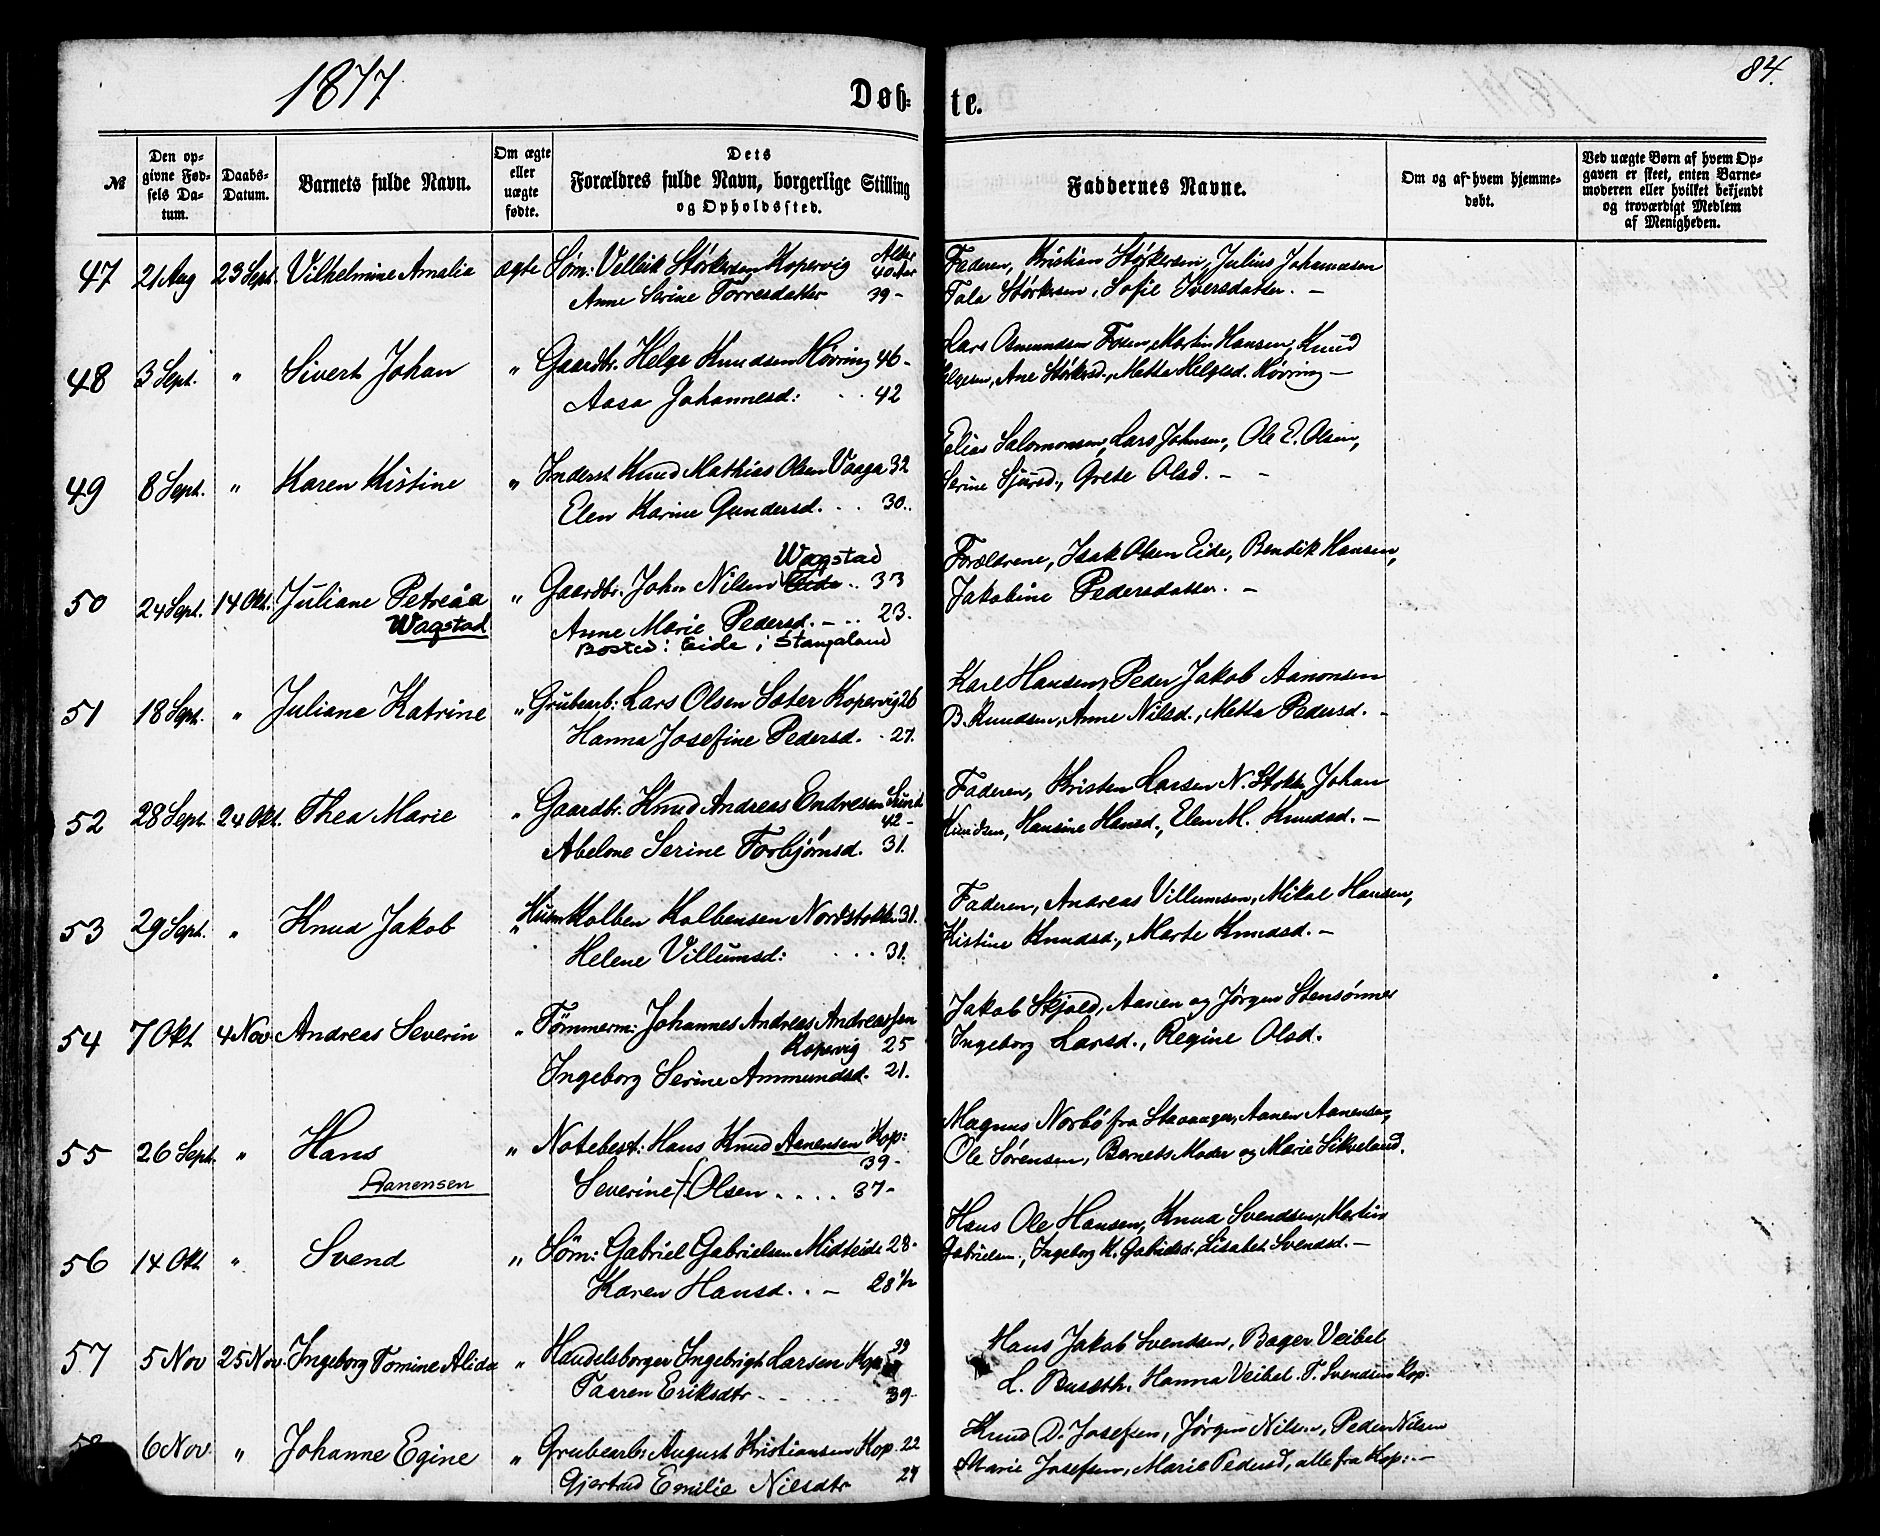 1877
Døbte.
84.
№
Den opgivne Fødsels Datum.
Daabs-Datum.
Barnets fulde Navn.
Om ægte eller uægte fødte.
Dets Forældres fulde Navn, borgerlige Stilling og Opholdssted.
Faddernes Navne.
Om og af hvem hjemmedøbt.
Ved uægte Børn af hvem Opgaven er skeet, enten Barnemoderen eller hvilket bekjendt og troværdigt Medlem af Menigheden.
47 21 Aug 23 Sept. Vilhelmine Amalia ægte Søm: Velleik Størkersen Kopervig Alder 40 Aar
Anne Serine Torresdatter 39 -
Faderen, Kristian Størkersen, Julius Johannesen
Tala Størkersen, Sofie Iversdatter. -
48 3 Sept. " Sivert Johan " Gaardbr. Helge Knudsen Høvring 46 -
Aasa Johannesd: . . 42
Lars Osmundsen Fosen, Martin Hansen, Knud
Helgesen, Ane Størksd., Metta Helgesd. Høvring -
49 8 Sept. " Karen Kistine " Inderst Knud Mathias Olsen Vaaga 32
Elen Karine Gundersd. . . 30.
Elias Salomonsen, Lars Johnsen, Ole E. Olsen,
Serine Sjursd., Grete Olsd. - -
50 24 Sept. 14 Okt. Juliane Petreåa " Gaardbr. John Nilsen Eide Wagstad . . 33
Wagstad
Anne Marie Pedersd. - . . 23.
Bosted: Eide i Stangaland
Forældrene, Isak Olsen Eide, Bendik Hansen,
Jakobine Pedersdatter. -
51 18 Sept. " Juliane Katrine " Grubearb: Lars Olsen Sæter Kopervig 26
Hanna Josefine Pedersd. . 27.
Karl Hansen, Peder Jakob Aanonsen
B. Knudsen, Anne Nilsd., Metta Pedersd. -
52 28 Sept. 24 Okt. Thea Marie " Gaardbr. Knud Andreas Endresen Sund 42 -
Abelone Serine Torbjørnsd. 31.
Faderen, Kristen Larsen N. Stokke, Johan
Knudsen, Hansine Hansd., Elen M. Knudsd. -
53 29 Sept. " Knud Jakob " Husm Kolben Kolbensen Nordstokke 31.
Helene Villumsd: . . . 31.
Faderen, Andreas Villumsen, Mikal Hansen,
Kistine Knudsd., Marte Knudsd. -
54 7 Okt 4 Nov. Andreas Severin " Tømmerm: Johannes Andreas Andreassen
Kopervig 25
Ingeborg Serine Ammundsd. 21.
Jakob Skjold, Aanen og Jørgen Stensønnes
Ingeborg Larsd., Regine Olsd.
55 26 Sept. " Hans " Notebest: Hans Knud Aanensen Kop: 39 -
Aanensen
Severine Olsen . . . . 37 -
Magnus Norbø fra Stavanger, Aanen Aanensen,
Ole Sørensen, Barnets Moder og Marie Sikveland.
56 14 Okt " Svend " Søm: Gabriel Gabrielsen Midteide 28 -
Karen Hansd. . - 28 1/2
Hans Ole Hansen, Knud Svendsen, Martin
Gabrielsen, Ingeborg K. Gabrielsd. Lisabet Svendsd. -
57 5 Nov 25 Nov. Ingeborg Tomine Alida " Handelsborger Ingebrigt Larsen Kop: 39
Taaren Eriksdtr - . . . 39 -
Hans Jakob Svendsen, Bager Veibel
L. Busæth, Hanna Veibel. T. Svendsen Kop.
58 6 Nov. " Johanne Egine " Grubearb: August Kristiansen Kop 22
Gjertrud Emilie Nilsdtr 24
Knud D. Josefsen, Jørgen Nilsen, Peder Nilsen
Marie Josefsen, Marie Pedersd, alle fra Kop: -